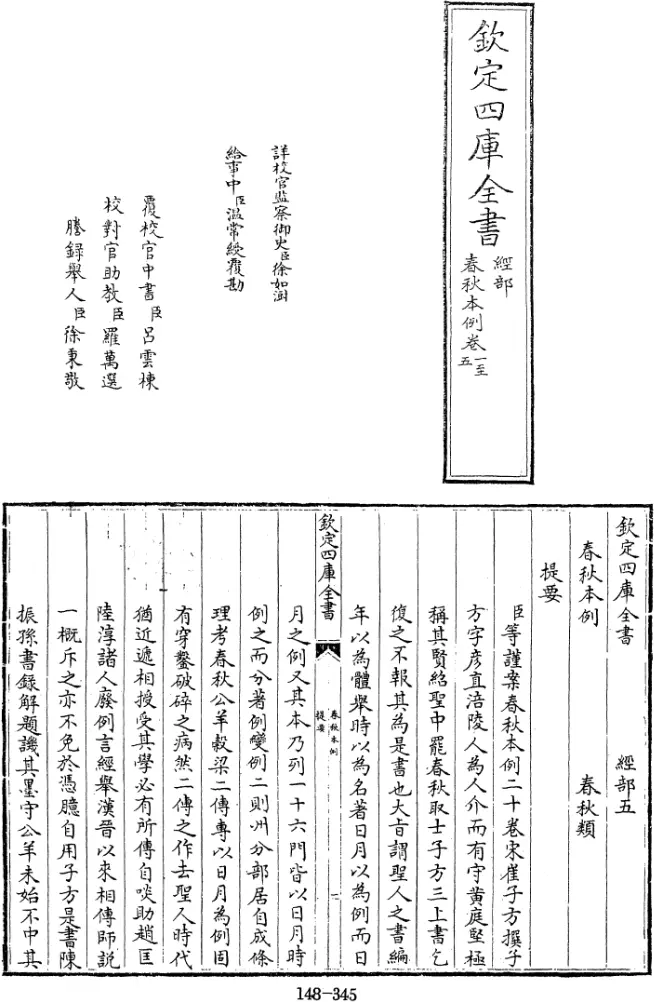 欽定四庫全書
經部
春秋本例卷一至五
詳校官監察御史臣徐如澍
給事中臣温常綬覆勘
覆校官中書臣呂雲棟
校對官助教臣羅萬選
謄錄舉人臣徐秉敬
欽定四庫全書 經部五
春秋本例 春秋類
提要
臣等謹案春秋本例二十卷宋崔子方撰子
方字彦直涪陵人為人介而有守黄庭堅極
稱其賢紹聖中罷春秋取士子方三上書乞
復之不報其為是書也大㫖謂聖人之書編
年以為體舉時以為名著日月以為例而日
欽定四庫全書
春秋本例
提要
一
月之例又其本乃列一十六門皆以日月時
例之而分著例變例二則州分部居自成條
理考春秋公羊穀梁二傳専以日月為例固
有穿鑿破碎之病然二傳之作去聖人時代
猶近遞相授受其學必有所傳自啖助趙匡
陸淳諸人廢例言經舉漢晉以來相傳師説
一概斥之亦不免於憑臆自用子方是書陳
振孫書録解題譏其墨守公羊未始不中其
148-345